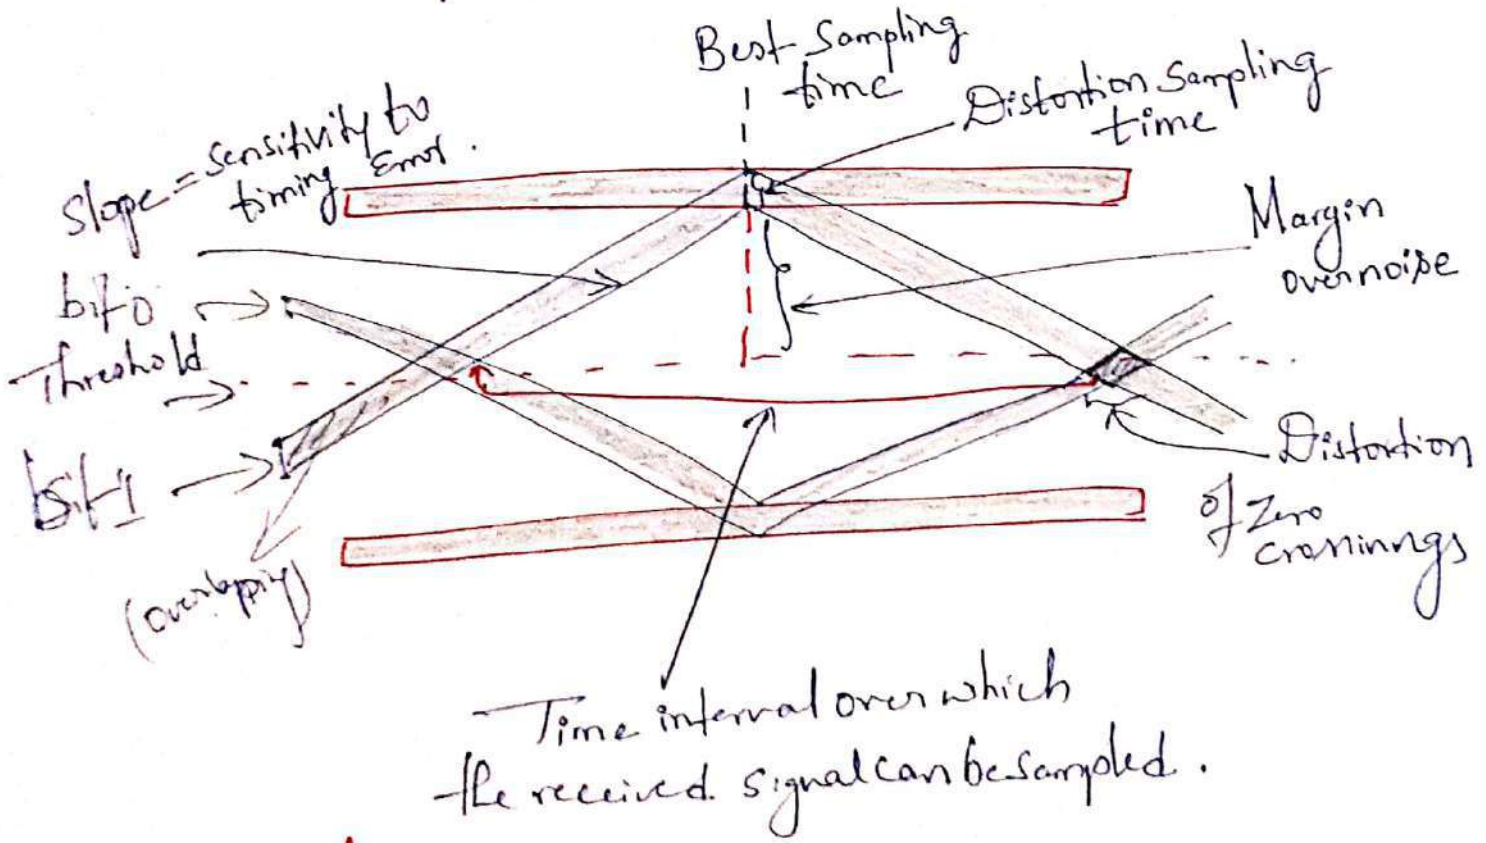 Best Sampling
time
Distortion Sampling
time
Slope = Sensitivity to
timing Error.
Margin
over noise
bit 0
Threshold
bit 1
Distortion
of Zero
(overlapping)
Time interval over which
the received signal can be sampled.